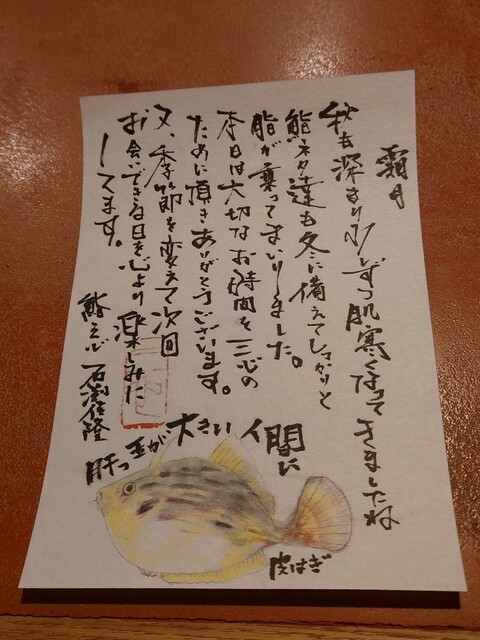 霜月
秋も深まり少しずつ肌寒くなってきましたね
鮨ネタ達も冬に備えてしっかりと
脂が乗ってまいりました。
本日は大切なお時間を三心の
ために頂きありがとうございます。
又、季節を変えて次回
お会いできる日を心より楽しみに
してます。
鮨三心 石渕佳隆
肝っ玉が大きい人間に
皮はぎ